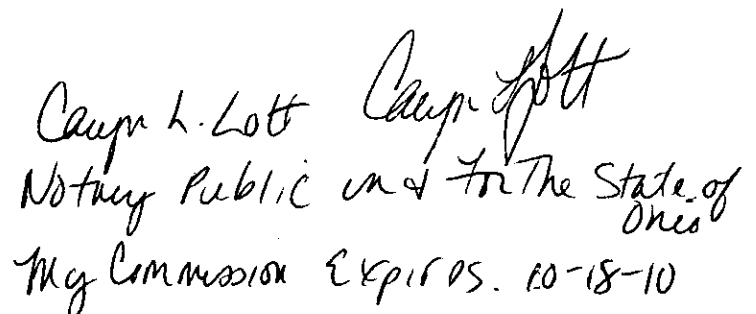 Caryn L. Lott Caryn L Lott
Notary Public in & For The State of
Ohio
My Commission Expires. 10-18-10